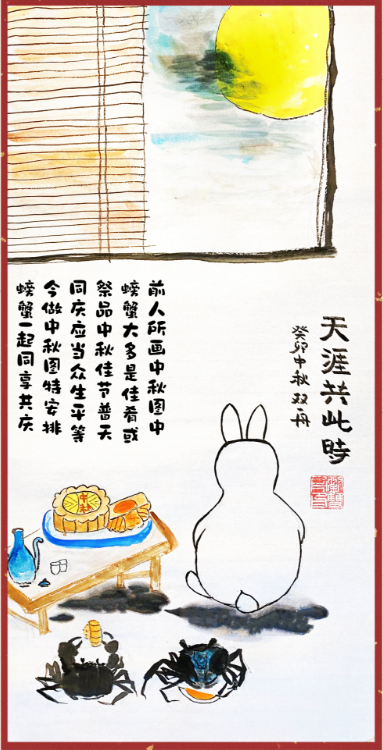 天涯共此時
癸卯中秋双舟
前人所画中秋图中
螃蟹大多是佳肴或
祭品中秋佳节普天
同庆应当众生平等
今做中秋图特安排
螃蟹一起同享共庆